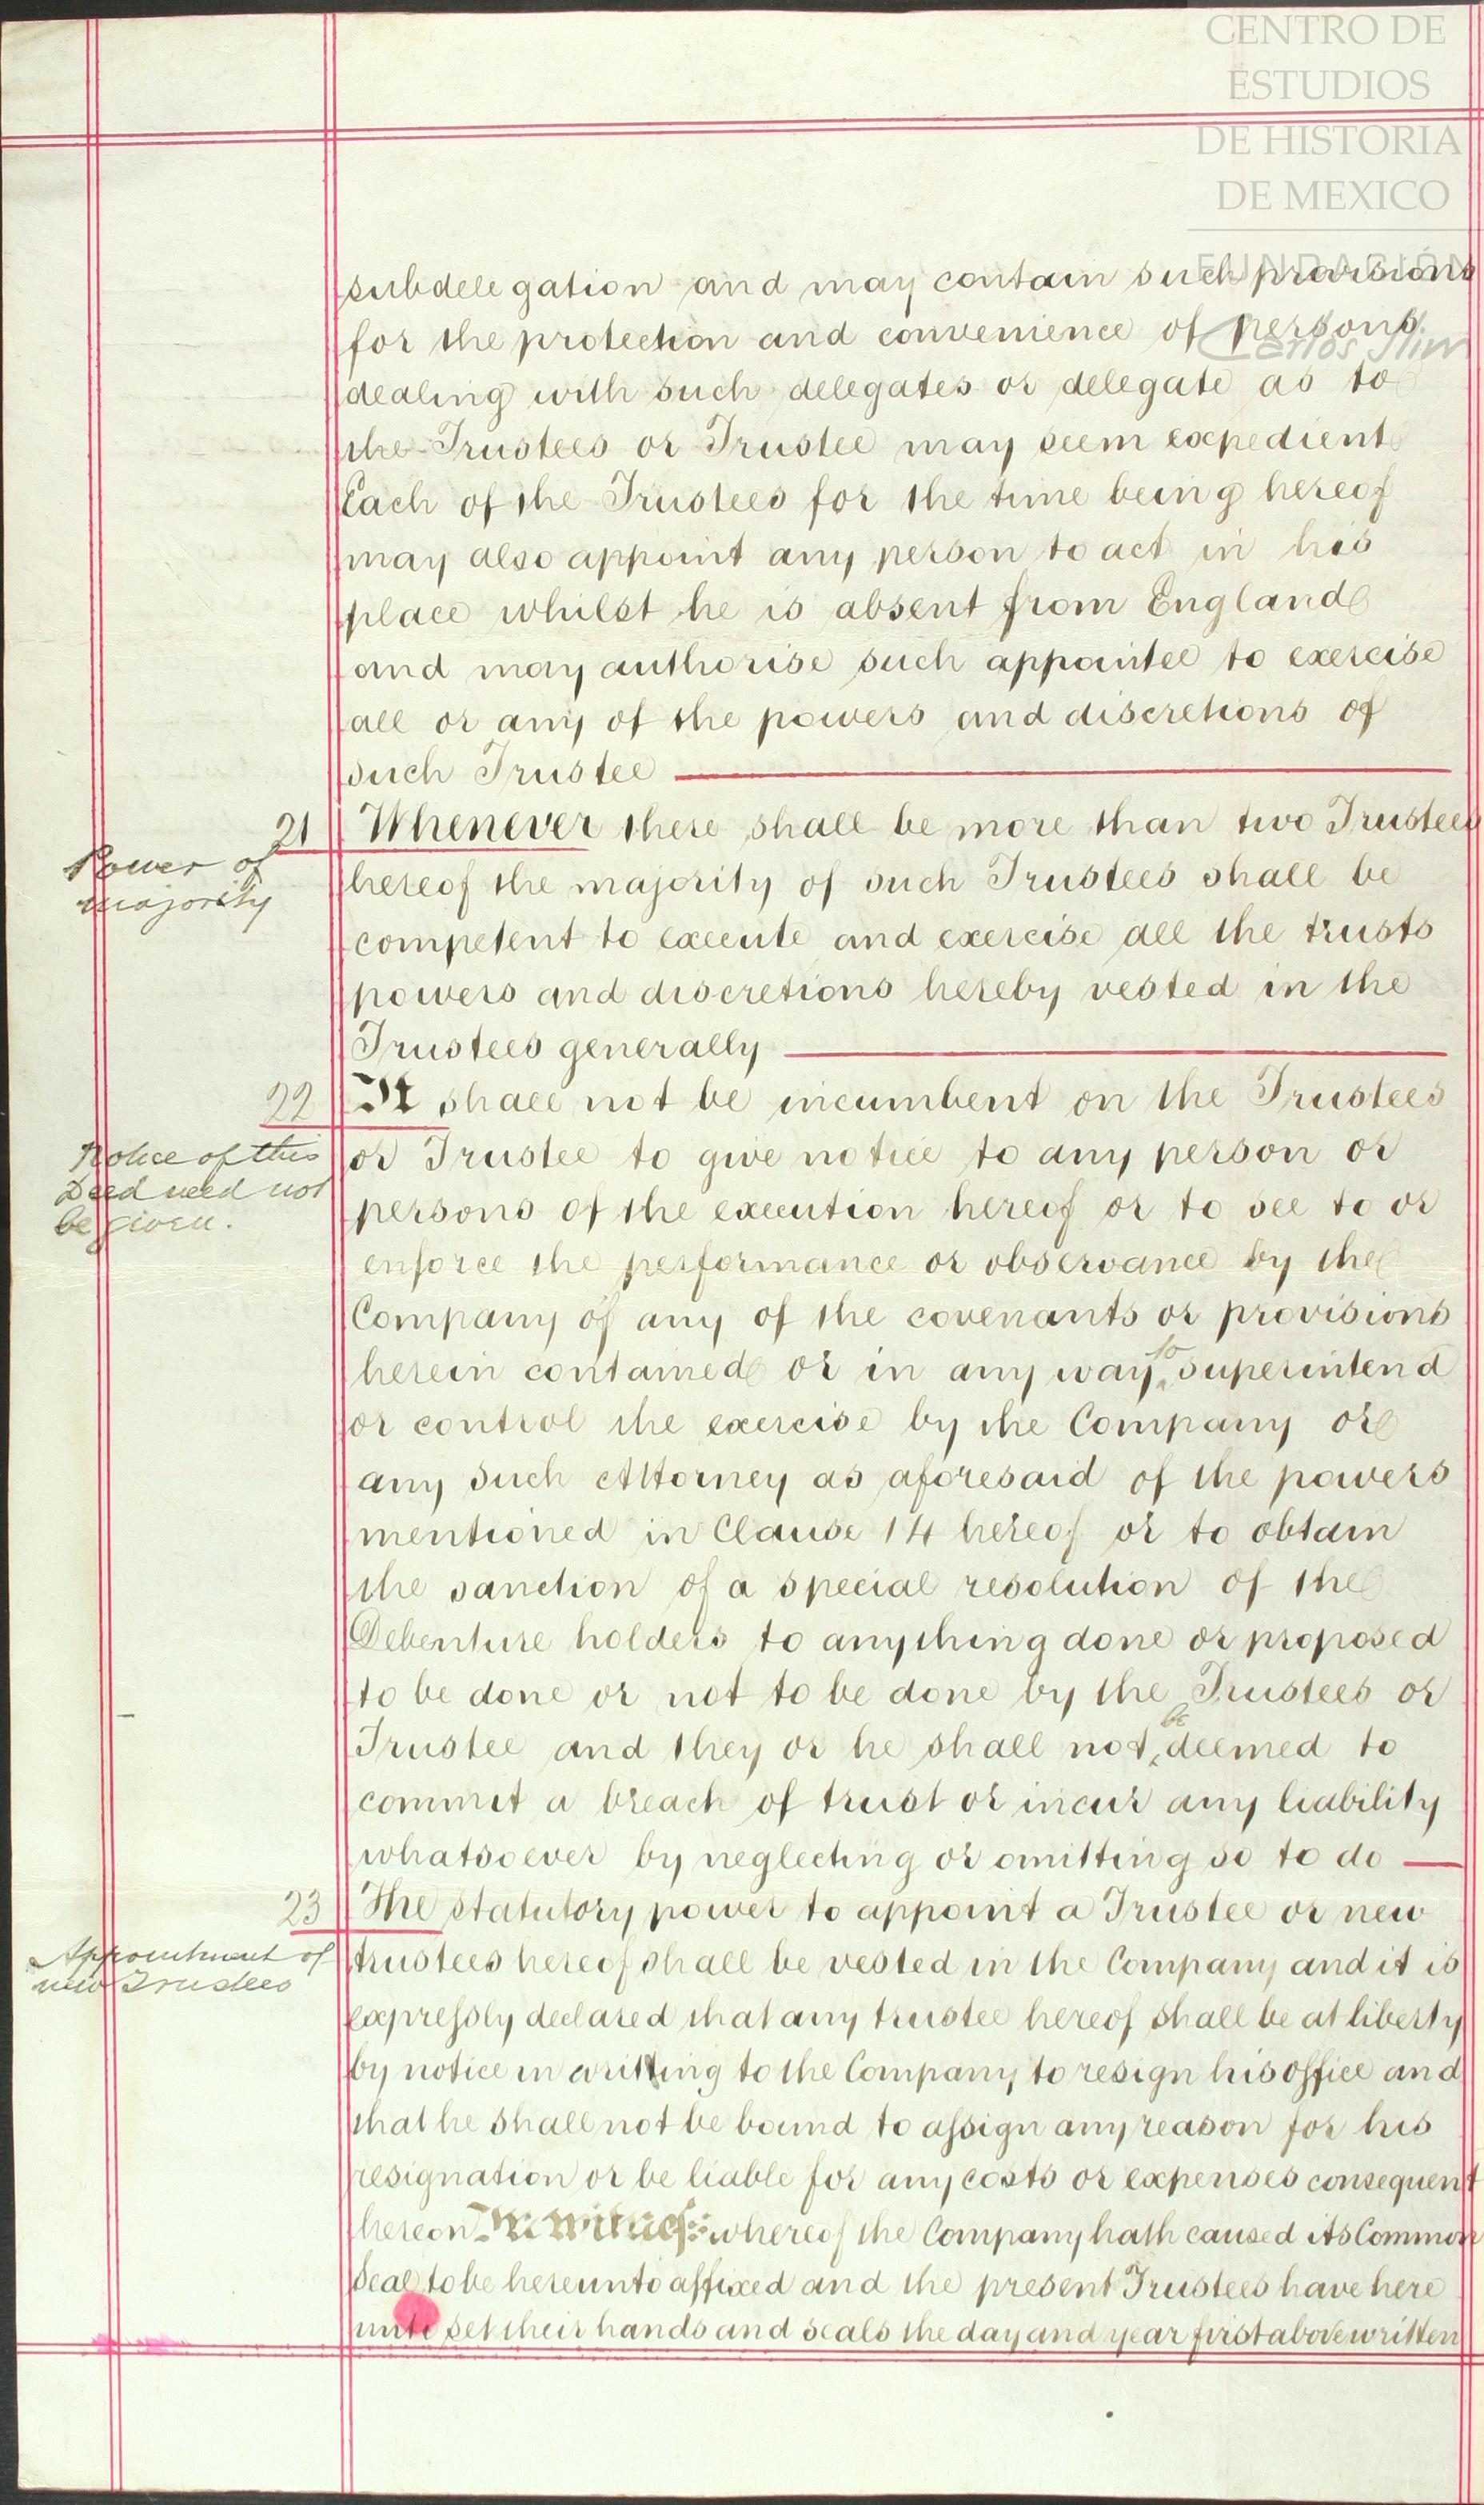 CENTRO DE
ESTUDIOS
DE HISTORIA
DE MEXICO
FUNDACIÓN
Carlos Slim
subdelegation and may contain such provisions
for the protection and convenience of persons
dealing with such delegates or delegate as to
the Trustees or Trustee may seem expedient
Each of the Trustees for the time being hereof
may also appoint any person to act in his
place whilst he is absent from England
and may authorise such appointee to exercise
all or any of the powers and discretions of
such Trustee
21 Whenever there shall be more than two Trustees
Power of
majority
hereof the majority of such Trustees shall be
competent to execute and exercise all the trusts
powers and discretions hereby vested in the
Trustees generally
22 It shall not be incumbent on the Trustees
Notice of this
Deed need not
be given.
or Trustee to give notice to any person or
persons of the execution hereof or to see to or
enforce the performance or observance by the
Company of any of the covenants or provisions
herein contained or in any way to superintend
or control the exercise by the Company or
any such Attorney as aforesaid of the powers
mentioned in Clause 14 hereof or to obtain
the sanction of a special resolution of the
Debenture holders to anything done or proposed
to be done or not to be done by the Trustees or
Trustee and they or he shall not be deemed to
commit a breach of trust or incur any liability
whatsoever by neglecting or omitting so to do
23 The statutory power to appoint a Trustee or new
Appointment of
new Trustees
trustees hereof shall be vested in the Company and it is
expressly declared that any trustee hereof shall be at liberty
by notice in writing to the Company to resign his office and
that he shall not be bound to assign any reason for his
resignation or be liable for any costs or expenses consequent
hereon In witness whereof the Company hath caused its Common
Seal to be hereunto affixed and the present Trustees have here
unto set their hands and seals the day and year first above written